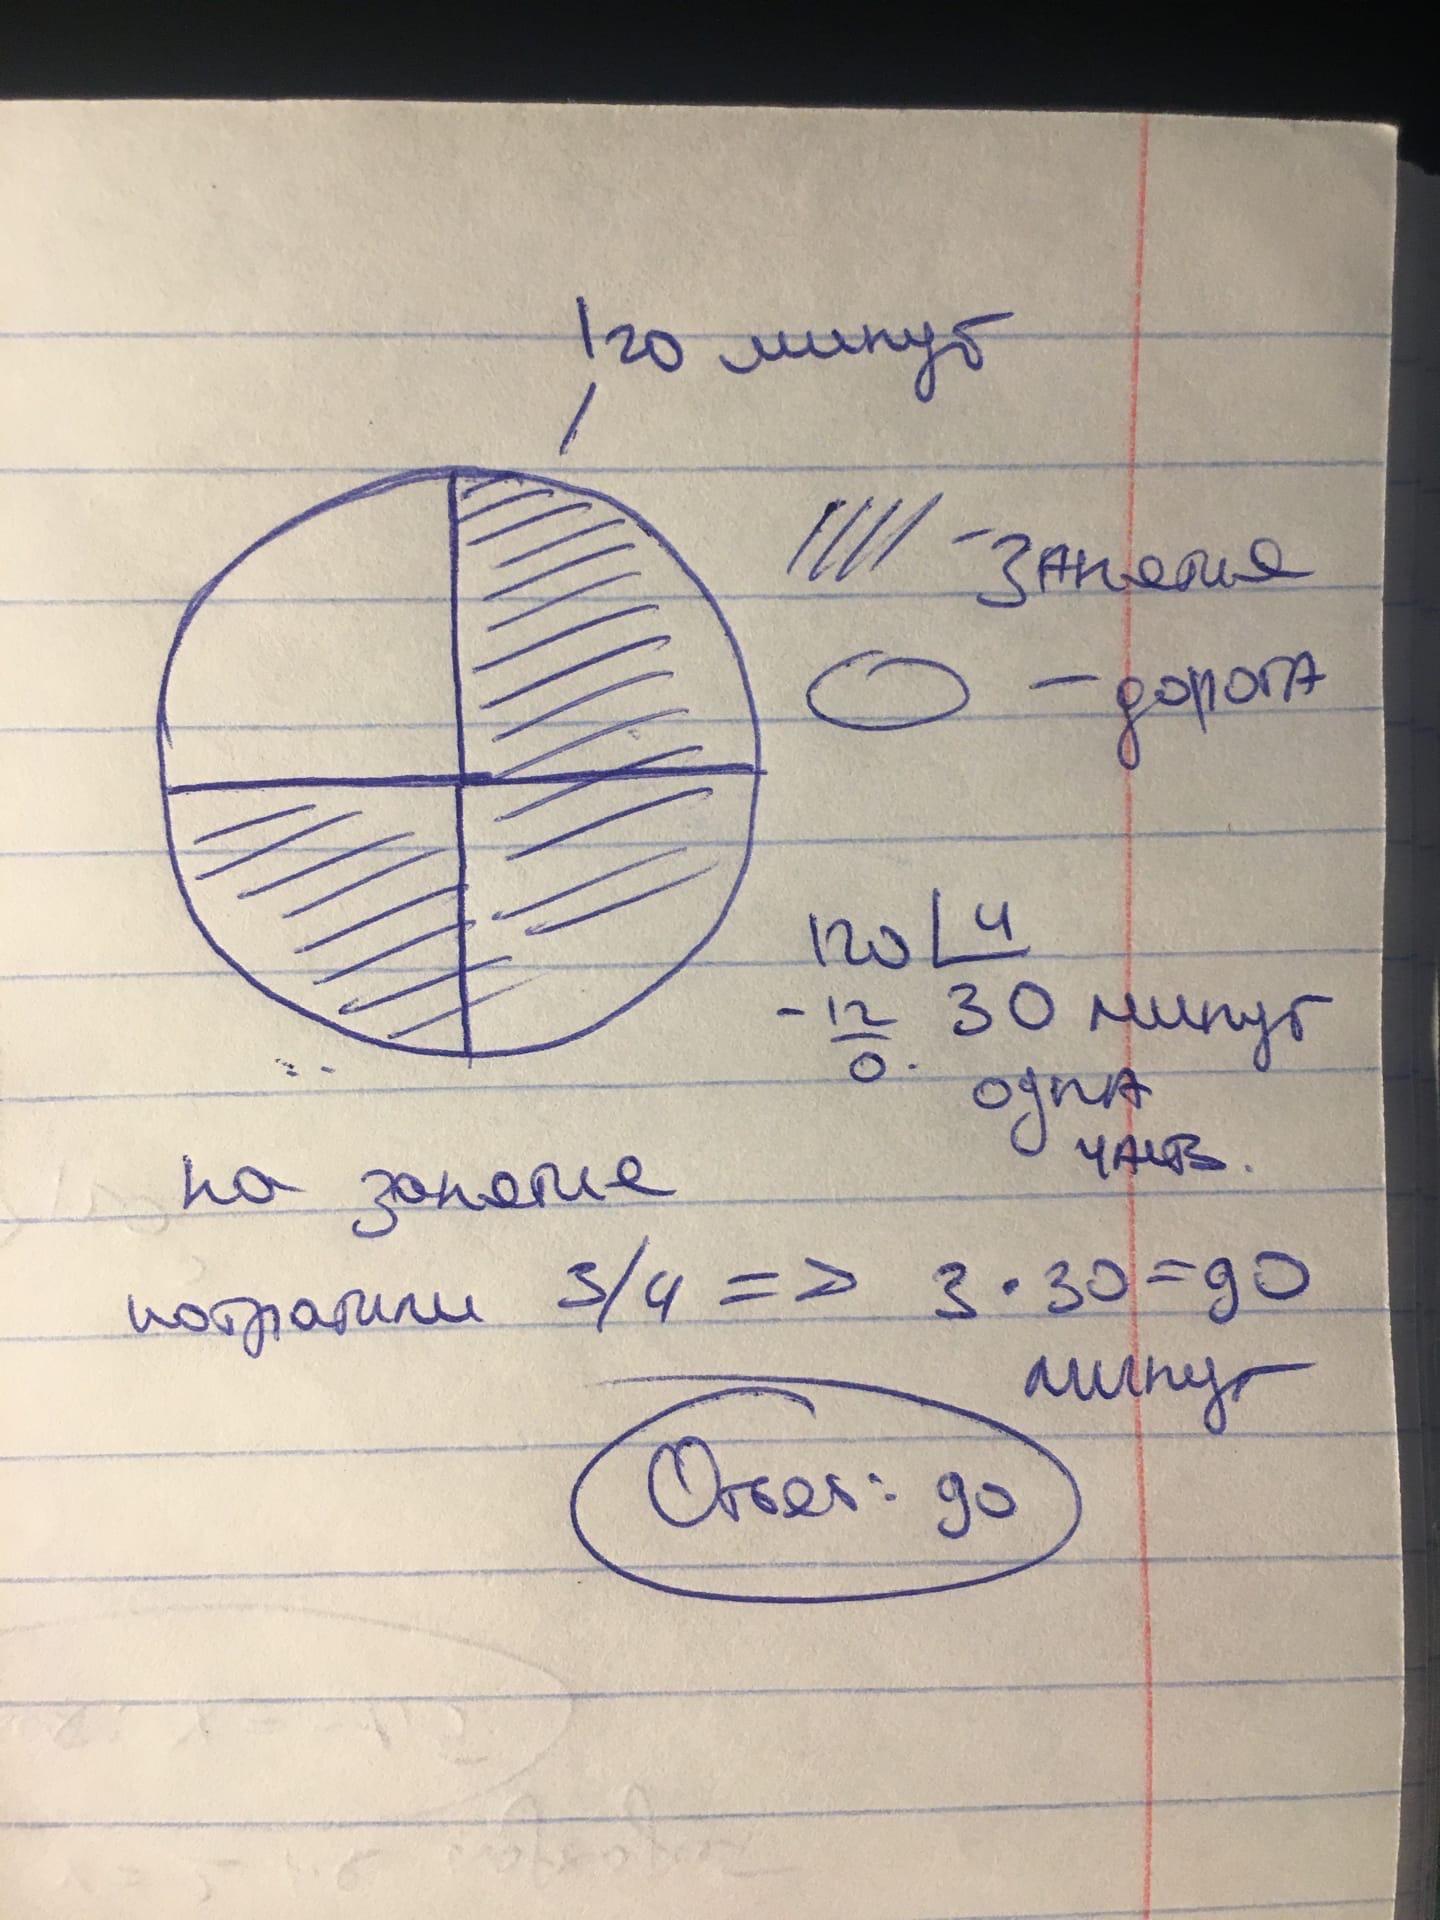 120 минут
- занятие
- дорога
120 4
- 12 30 минут
0. одна
часть.
на занятие
потратили 3/4 => 3 · 30 = 90
минут
Ответ: 90